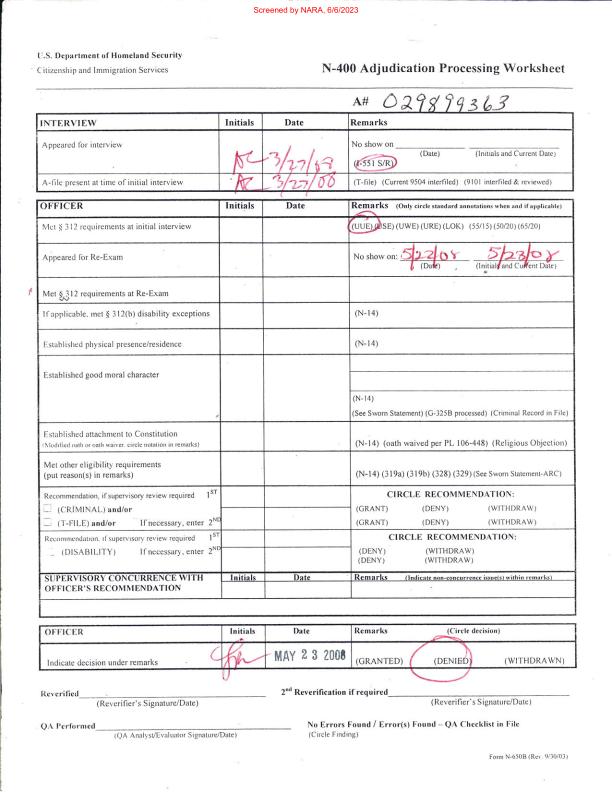 Screened by NARA, 6/6/2023
U.S. Department of Homeland Security
Citizenship and Immigration Services
N-400 Adjudication Processing Worksheet
A# 029899363
INTERVIEW Initials Date Remarks
Appeared for interview 3/27/08 No show on
(Date) (Initials and Current Date)
(I-551 S/R)
A-file present at time of initial interview 3/27/08 (T-file) (Current 9504 interfiled) (9101 interfiled & reviewed)
OFFICER Initials Date Remarks (Only circle standard annotations when and if applicable)
Met § 312 requirements at initial interview (UUE) (USE) (UWE) (URE) (LOK) (55/15) (50/20) (65/20)
Appeared for Re-Exam No show on: 5/22/08 5/23/08
(Date) (Initials and Current Date)
Met § 312 requirements at Re-Exam
If applicable, met § 312(b) disability exceptions (N-14)
Established physical presence/residence (N-14)
Established good moral character
(N-14)
(See Sworn Statement) (G-325B processed) (Criminal Record in File)
Established attachment to Constitution
(Modified oath or oath waiver, circle notation in remarks) (N-14) (oath waived per PL 106-448) (Religious Objection)
Met other eligibility requirements
(put reason(s) in remarks) (N-14) (319a) (319b) (328) (329) (See Sworn Statement-ARC)
Recommendation, if supervisory review required 1ST CIRCLE RECOMMENDATION:
(CRIMINAL) and/or (GRANT) (DENY) (WITHDRAW)
(T-FILE) and/or If necessary, enter 2ND (GRANT) (DENY) (WITHDRAW)
Recommendation, if supervisory review required 1ST CIRCLE RECOMMENDATION:
(DISABILITY) If necessary, enter 2ND (DENY) (WITHDRAW)
(DENY) (WITHDRAW)
SUPERVISORY CONCURRENCE WITH Initials Date Remarks (Indicate non-concurrence issue(s) within remarks)
OFFICER'S RECOMMENDATION
OFFICER Initials Date Remarks (Circle decision)
Indicate decision under remarks MAY 23 2008 (GRANTED) (DENIED) (WITHDRAWN)
Reverified 2nd Reverification if required
(Reverifier's Signature/Date) (Reverifier's Signature/Date)
QA Performed No Errors Found / Error(s) Found – QA Checklist in File
(QA Analyst/Evaluator Signature/Date) (Circle Finding)
Form N-650B (Rev. 9/30/03)